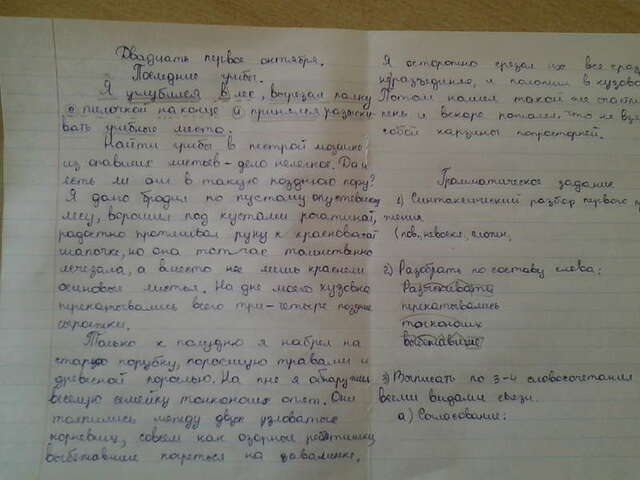 Двадцать первое октября.
Последние грибы.
Я углубился в лес, вырезал палку
с палочкой на конце и принялся разыски-
вать грибные места.
Найти грибы в пестрой мозаике
из опавших листьев - дело нелегкое. Да и
есть ли они в такую позднюю пору?
Я долго бродил по пустому опустевшему
лесу, ворошил под кустами рогатиной,
радостно протягивал руку к красноватой
шапочке, но она тотчас таинственно
исчезала, а вместо нее лишь краснели
осиновые листья. На дне моего кузовка
перекатывались всего три-четыре поздние
сыроежки.
Только к полудню я набрел на
старую порубку, поросшую травами и
древесной порослью. На пне я обнаружил
веселую семейку тонконогих опят. Они
толпились между двух узловатых
корневищ, совсем как озорные ребятишки
выбежавшие погреться на завалинке.
Я осторожно срезал их все сразу
не разъединяя, и положил в кузовок
Потом нашел такой же счастли
пень и вскоре пожалел, что не взя
собой корзины попросторней.
Грамматическое задание
1) Синтаксический разбор первого пр
жения
(пов., невоскл., сложн,
2) Разобрать по составу слова:
Разыскивать
перекатывались
тонконогих
выбежавшие
3) Выписать по 3-4 словосочетания
всеми видами связи.
а) Согласование: